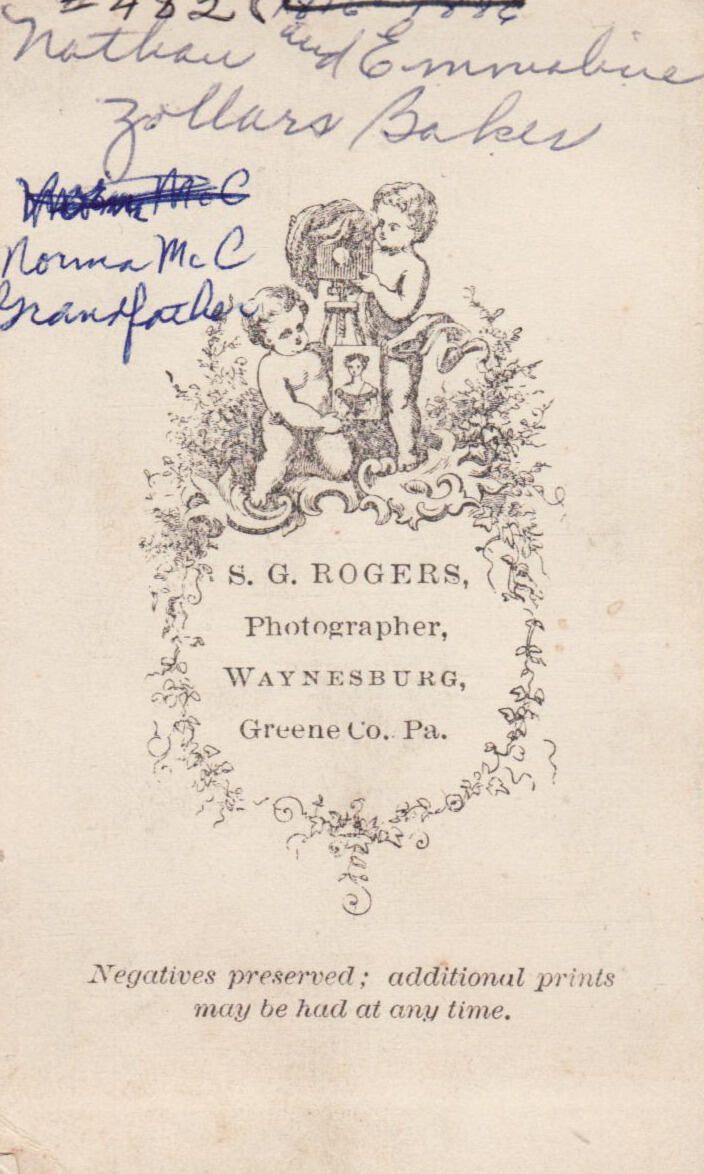 482
Nathan and Emmaline
Zollars Baker
Norma McC
Norma McC
Grandfather
S. G. ROGERS,
Photographer,
WAYNESBURG,
Greene Co. Pa.
Negatives preserved; additional prints
may be had at any time.